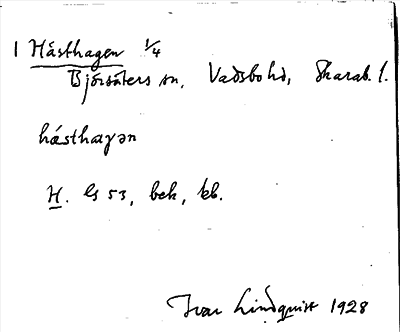 1 Hästhagen 1/4
Björsäters sn, Vadsbo hd, Skarab. l.
hästhaɣən
H. Gs 53, bek, kb.
Ivar Lindquist 1928